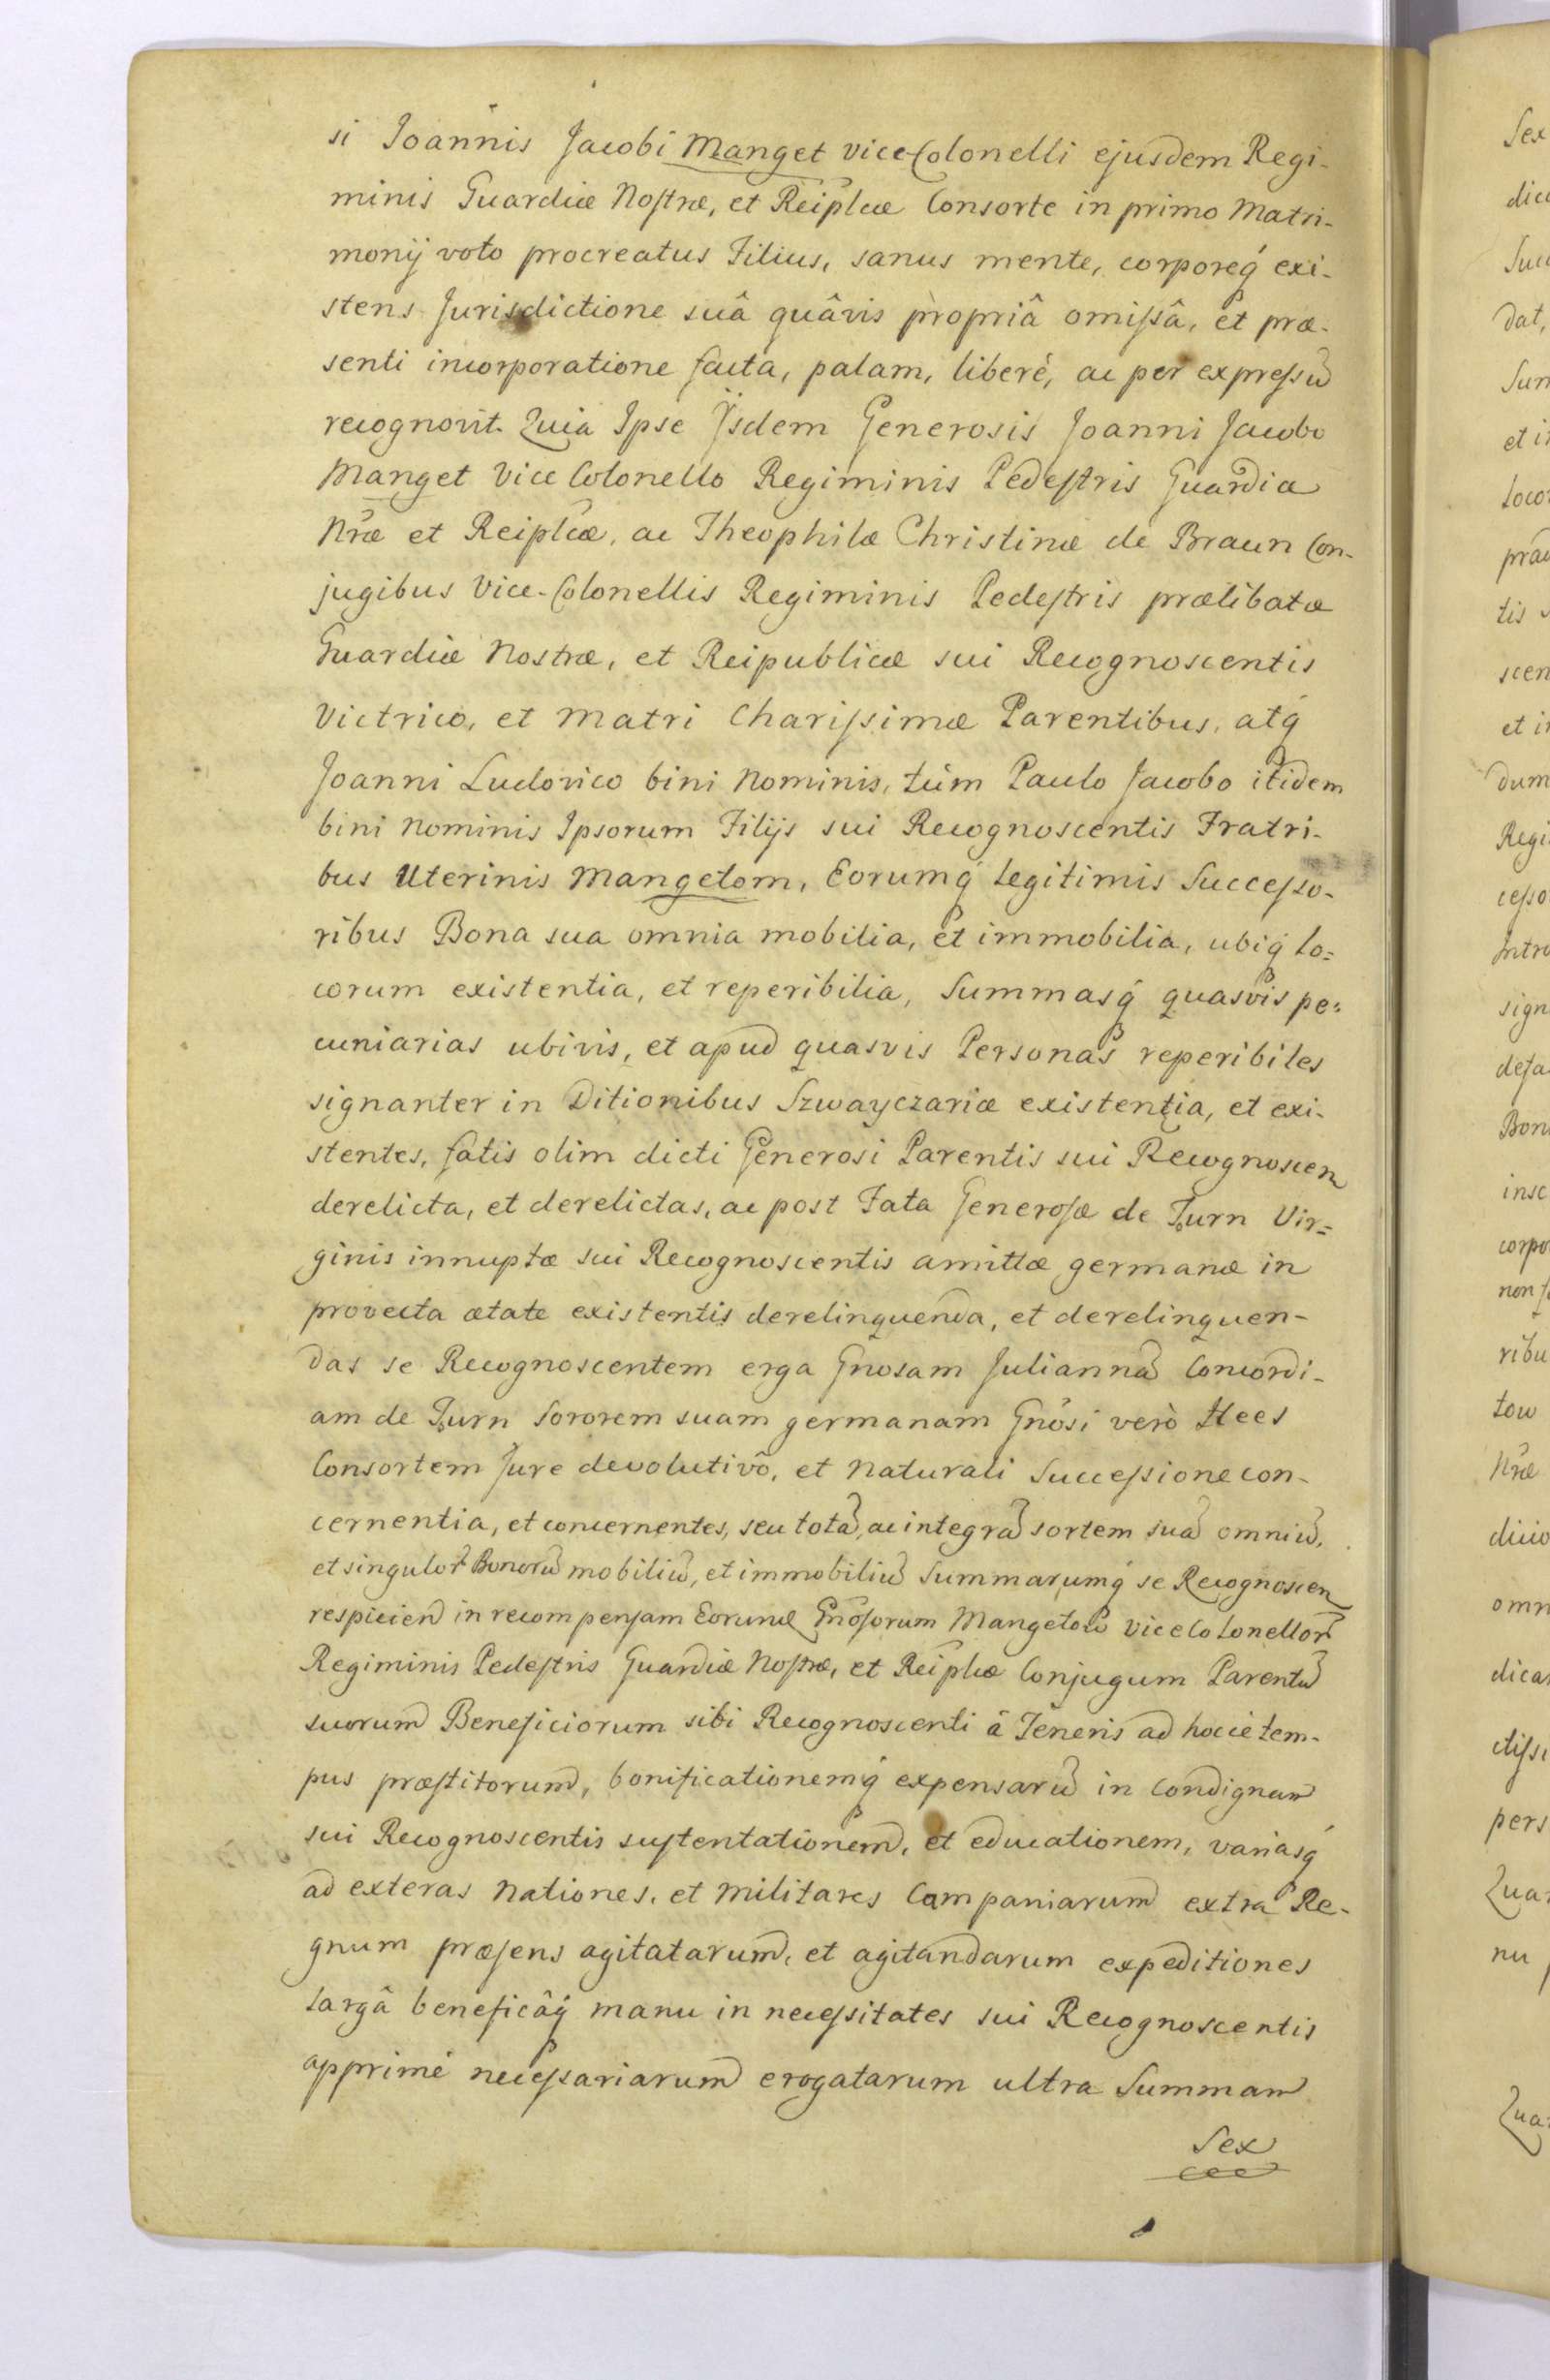 si Joannis Jacobi Manget vice-Colonelli ejusdem Regi-
minis Guardiæ Nostræ, et Reiplcæ Consorte in primo Matri-
monij voto procreatus Filius, sanus mente, corporeq́ exi-
stens Jurisdictione suâ quâvis propriâ omissâ, et præ-
senti incorporatione facta, palam, liberè, ac per expressũ
recognovit. Quia Ipse Ijsdem Generosis Joanni Jacobo
Manget Vice Colonello Regiminis Pedestris Guardiæ
Nrãe et Reiplcæ, ac Theophilæ Christinæ de Braun Con-
jugibus Vice-Colonellis Regiminis Pedestris prælibatæ
Guardiæ Nostræ, et Reipublicæ sui Recognoscentis
Victrico, et Matri Charissimæ Parentibus, atq́
Joanni Ludovico bini Nominis, tùm Paulo Jacobo itidem
bini Nominis Ipsorum Filijs sui Recognoscentis Fratri-
bus Uterinis Mangetom, Eorumq́ legitimis Successo-
ribus Bona sua omnia mobilia, et immobilia, ubiq́ lo=
corum existentia, et reperibilia, Summasq́ quasvis pe=
cuniarias ubivis, et apud quasvis Personas reperibiles
signanter in Ditionibus Szwayczariæ existentia, et exi-
stentes, fatis olim dicti Generosi Parentis sui Recognoscen
derelicta, et derelictas, ac post Fata Generosæ de Turn Vir=
ginis innuptæ sui Recognoscentis amittæ germanæ in
provecta ætate existentis derelinquenda, et derelinquen-
das se Recognoscentem erga Gnosam Juliannã Concordi-
am de Turn Sororem suam germanam Gnosi verò Hees
Consortem Jure devolutivô, et Naturali Successione con-
cernentia, et concernentes, seu totã, ac integrã sortem suã omniũ,
et singulor Bonorũ mobiliũ, et immobiliũ Summarumq́ se Recognoscen
respiciend in recompensam Eorund Gnosorum Mangetow Vice Colonellor
Regiminis Pedestris Guardiæ Nostræ, et Reiplcæ Conjugum Parentũ
suorum Beneficiorum sibi Recognoscenti â Teneris ad hocce tem-
pus præstitorum, bonificationemq́ expensarũ in condignam
sui Recognoscentis sustentationem, et educationem, variasq́
ad exteras Nationes, et Militares Campaniarum extra Re-
gnum præsens agitatarum, et agitandarum expeditiones
largâ beneficâq́ manu in necessitates sui Recognoscentis
apprimè necessariarum erogatarum ultra Summam
Sex